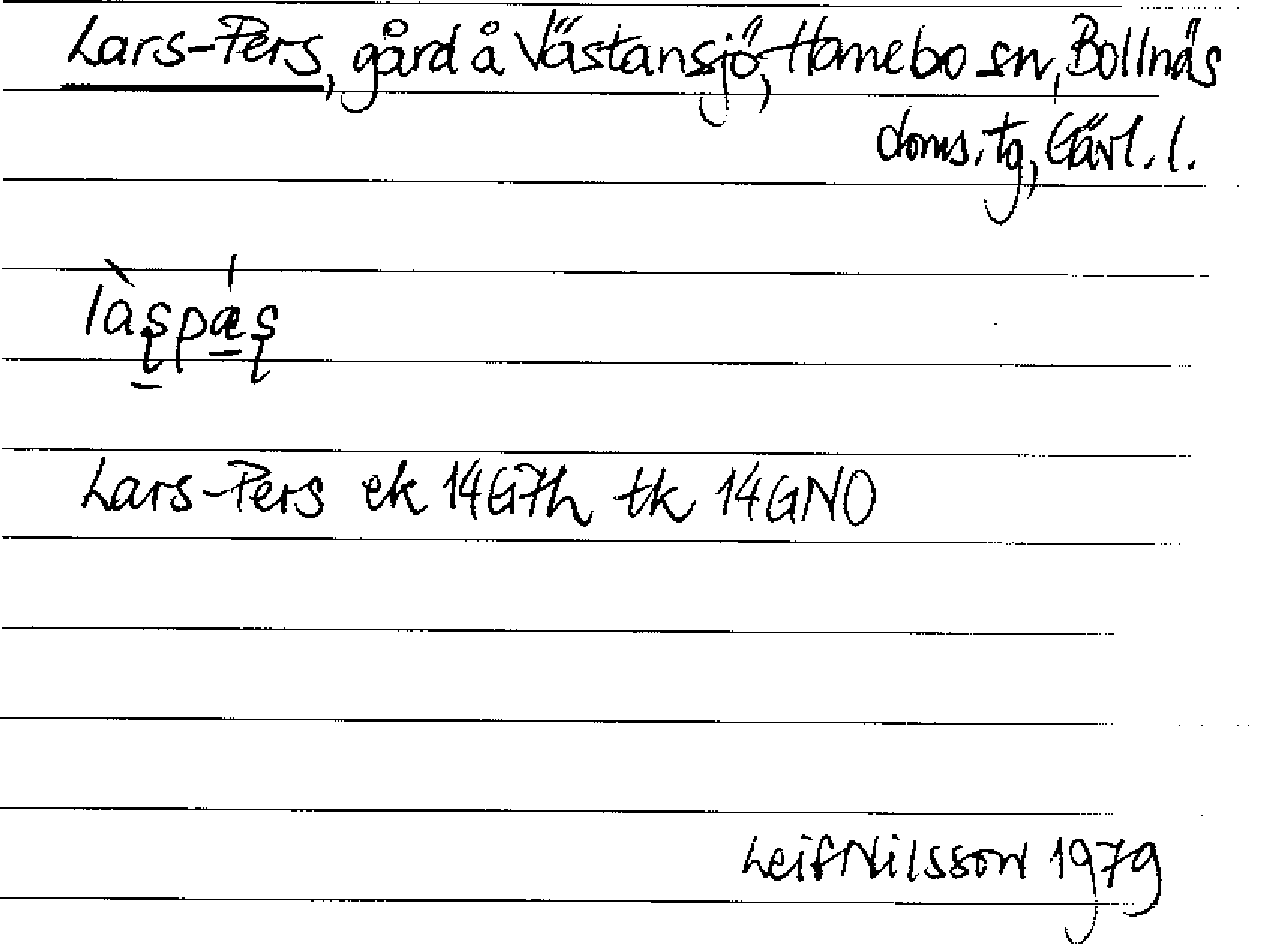 Lars-Pers, gård å Västansjö, Hanebo sn, Bollnäs
doms. tg, Gävl. l.
làʂpǽʂ
Lars-Pers ek 14G7h tk 14GNO
Leif Nilsson 1979